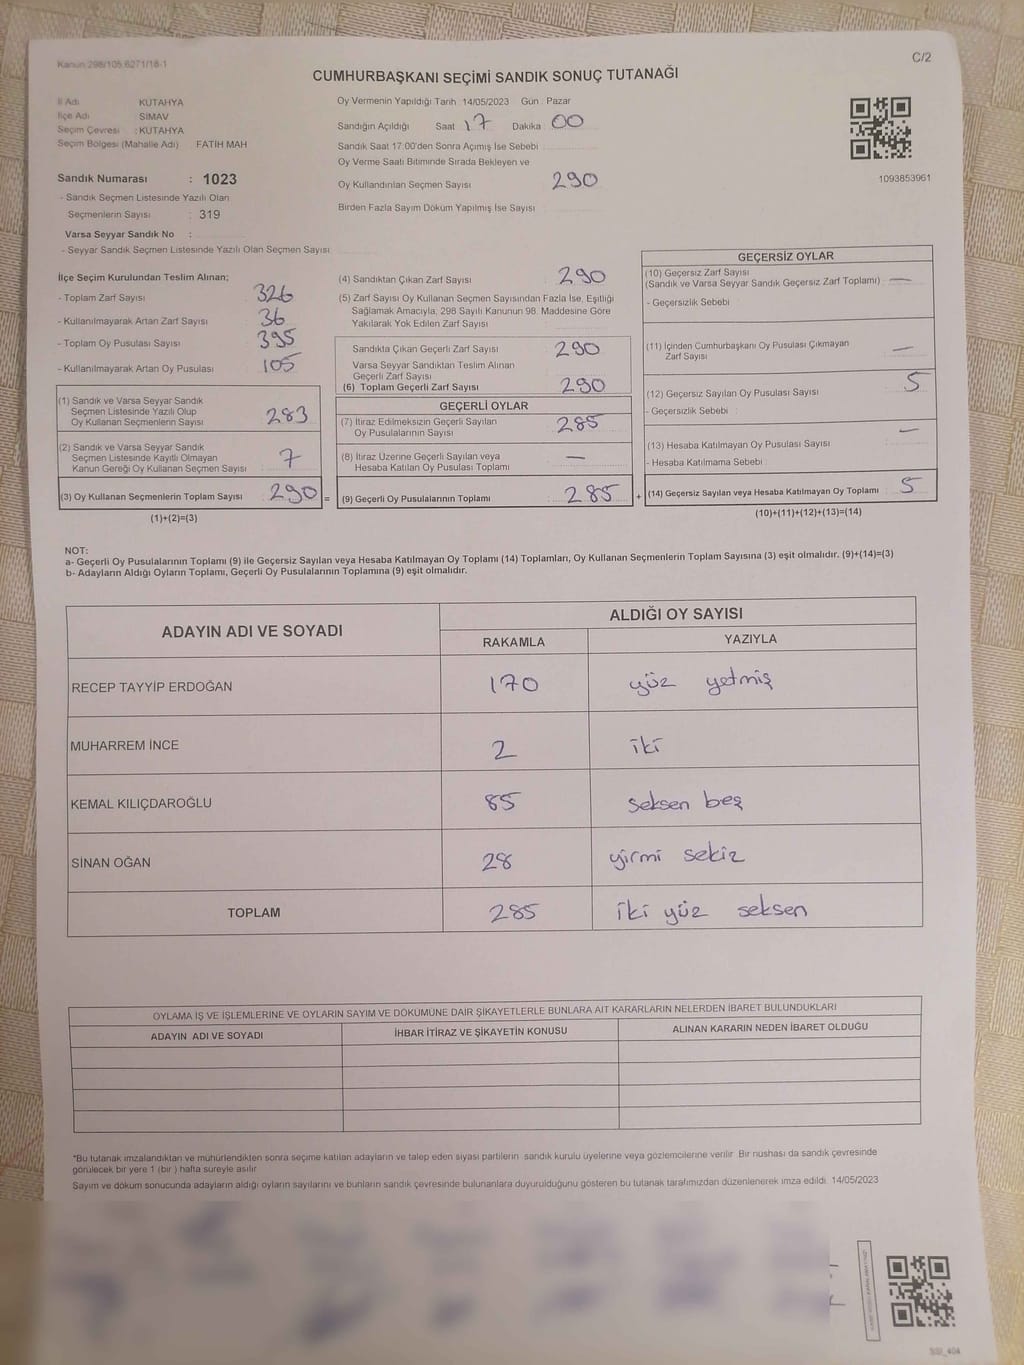 Kanun:298/105,6271/18-1
C/2
CUMHURBAŞKANI SEÇİMİ SANDIK SONUÇ TUTANAĞI
İl Adı KUTAHYA
İlçe Adı SIMAV
Seçim Çevresi : KUTAHYA
Seçim Bölgesi (Mahalle Adı) FATIH MAH
Sandık Numarası : 1023
- Sandık Seçmen Listesinde Yazılı Olan
Seçmenlerin Sayısı : 319
Varsa Seyyar Sandık No :
- Seyyar Sandık Seçmen Listesinde Yazılı Olan Seçmen Sayısı
Oy Vermenin Yapıldığı Tarih 14/05/2023 Gün : Pazar
Sandığın Açıldığı Saat 17 Dakika 00
Sandık Saat 17:00'den Sonra Açımış İse Sebebi
Oy Verme Saati Bitiminde Sırada Bekleyen ve
Oy Kullandırılan Seçmen Sayısı 290
Birden Fazla Sayım Döküm Yapılmış İse Sayısı
1093853961
İlçe Seçim Kurulundan Teslim Alınan;
- Toplam Zarf Sayısı 326
- Kullanılmayarak Artan Zarf Sayısı 36
- Toplam Oy Pusulası Sayısı 395
- Kullanılmayarak Artan Oy Pusulası 105
(1) Sandık ve Varsa Seyyar Sandık
Seçmen Listesinde Yazılı Olup
Oy Kullanan Seçmenlerin Sayısı 283
(2) Sandık ve Varsa Seyyar Sandık
Seçmen Listesinde Kayıtlı Olmayan
Kanun Gereği Oy Kullanan Seçmen Sayısı 7
(3) Oy Kullanan Seçmenlerin Toplam Sayısı 290 =
(1)+(2)=(3)
(4) Sandıktan Çıkan Zarf Sayısı 290
(5) Zarf Sayısı Oy Kullanan Seçmen Sayısından Fazla İse, Eşitliği
Sağlamak Amacıyla, 298 Sayılı Kanunun 98. Maddesine Göre
Yakılarak Yok Edilen Zarf Sayısı
Sandıkta Çıkan Geçerli Zarf Sayısı 290
Varsa Seyyar Sandıktan Teslim Alınan
Geçerli Zarf Sayısı
(6) Toplam Geçerli Zarf Sayısı 290
GEÇERLİ OYLAR
(7) İtiraz Edilmeksizin Geçerli Sayılan
Oy Pusulalarının Sayısı 285
(8) İtiraz Üzerine Geçerli Sayılan veya
Hesaba Katılan Oy Pusulası Toplamı —
(9) Geçerli Oy Pusulalarının Toplamı 285 +
GEÇERSİZ OYLAR
(10) Geçersiz Zarf Sayısı
(Sandık ve Varsa Seyyar Sandık Geçersiz Zarf Toplamı) : —
- Geçersizlik Sebebi :
(11) İçinden Cumhurbaşkanı Oy Pusulası Çıkmayan
Zarf Sayısı —
(12) Geçersiz Sayılan Oy Pusulası Sayısı 5
- Geçersizlik Sebebi :
(13) Hesaba Katılmayan Oy Pusulası Sayısı —
- Hesaba Katılmama Sebebi :
(14) Geçersiz Sayılan veya Hesaba Katılmayan Oy Toplamı 5
(10)+(11)+(12)+(13)=(14)
NOT:
a- Geçerli Oy Pusulalarının Toplamı (9) ile Geçersiz Sayılan veya Hesaba Katılmayan Oy Toplamı (14) Toplamları, Oy Kullanan Seçmenlerin Toplam Sayısına (3) eşit olmalıdır. (9)+(14)=(3)
b- Adayların Aldığı Oyların Toplamı, Geçerli Oy Pusulalarının Toplamına (9) eşit olmalıdır.
ADAYIN ADI VE SOYADI ALDIĞI OY SAYISI
RAKAMLA YAZIYLA
RECEP TAYYİP ERDOĞAN 170 yüz yetmiş
MUHARREM İNCE 2 iki
KEMAL KILIÇDAROĞLU 85 seksen beş
SİNAN OĞAN 28 yirmi sekiz
TOPLAM 285 iki yüz seksen
OYLAMA İŞ VE İŞLEMLERİNE VE OYLARIN SAYIM VE DÖKÜMÜNE DAİR ŞİKAYETLERLE BUNLARA AİT KARARLARIN NELERDEN İBARET BULUNDUKLARI
ADAYIN ADI VE SOYADI İHBAR İTİRAZ VE ŞİKAYETİN KONUSU ALINAN KARARIN NEDEN İBARET OLDUĞU
*Bu tutanak imzalandıktan ve mühürlendikten sonra seçime katılan adayların ve talep eden siyasi partilerin sandık kurulu üyelerine veya gözlemcilerine verilir. Bir nüshası da sandık çevresinde
görülecek bir yere 1 (bir ) hafta süreyle asılır.
Sayım ve döküm sonucunda adayların aldığı oyların sayılarını ve bunların sandık çevresinde bulunanlara duyurulduğunu gösteren bu tutanak tarafımızdan düzenlenerek imza edildi. 14/05/2023